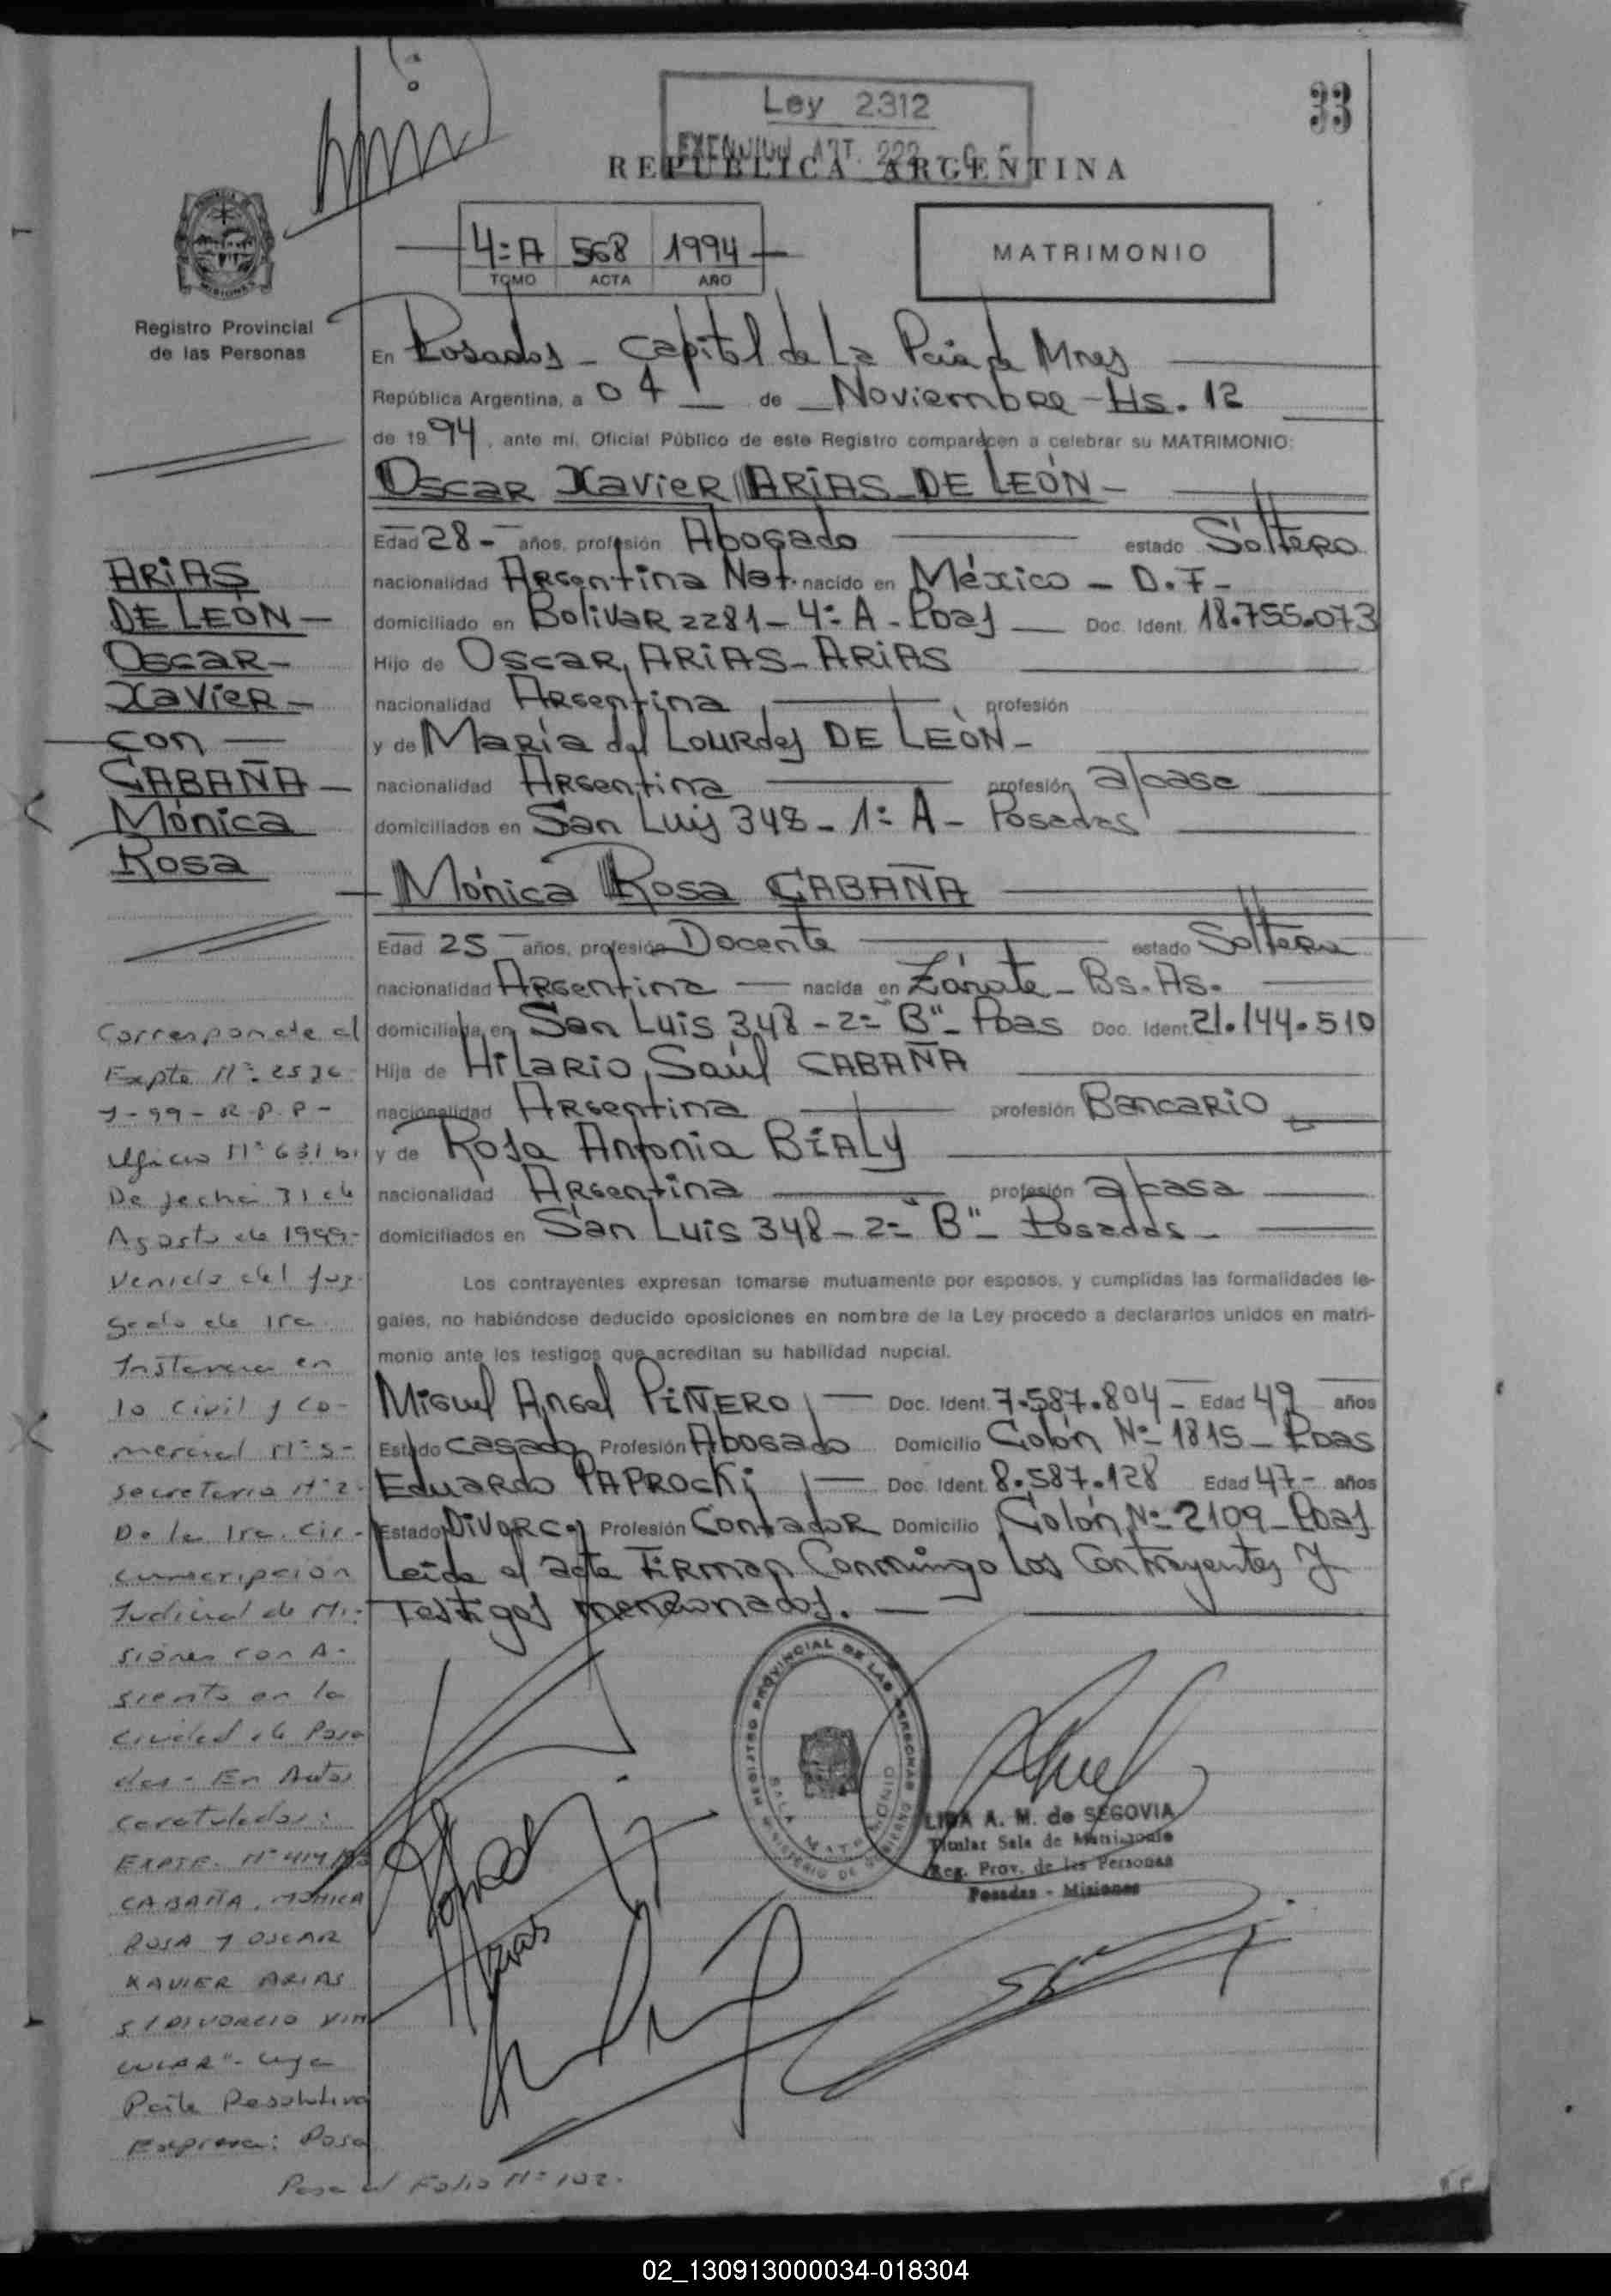 33
Ley 2312
EXENCION ART. 222
REPUBLICA ARGENTINA
4=A 568 1994
TOMO ACTA AÑO
MATRIMONIO
Registro Provincial
de las Personas
En Posadas - Capital de La Pcia de Mnes
República Argentina, a 04 de Noviembre - Hs. 12
de 1994, ante mí, Oficial Público de este Registro comparecen a celebrar su MATRIMONIO:
Oscar Xavier ARIAS DE LEÓN -
Edad 28 - años, profesión Abogado estado Soltero
nacionalidad Argentina Nat. nacido en México - D.F -
domiciliado en Bolivar 2281 - 4= A - Pdas Doc. Ident. 18.755.073
Hijo de Oscar, ARIAS - ARIAS
nacionalidad Argentina profesión
y de María del Lourdes DE LEÓN -
nacionalidad Argentina profesión a/case
domiciliados en San Luis 348 - 1= A - Posadas
Mónica Rosa CABAÑA
Edad 25 - años, profesión Docente estado Soltera
nacionalidad Argentina nacida en Zárate - Bs. As.
domiciliada en San Luis 348 - 2= "B" - Pdas Doc. Ident. 21.144.510
Hija de Hilario, Saúl CABAÑA
nacionalidad Argentina profesión Bancario
y de Rosa Antonia BIALY
nacionalidad Argentina profesión a/casa
domiciliados en San Luis 348 - 2= "B" - Posadas -
Los contrayentes expresan tomarse mutuamente por esposos, y cumplidas las formalidades le-
gales, no habiéndose deducido oposiciones en nombre de la Ley procedo a declararlos unidos en matri-
monio ante los testigos que acreditan su habilidad nupcial.
Miguel Angel PIÑERO Doc. Ident. 7.587.804 - Edad 49 años
Estado casado Profesión Abogado Domicilio Colón Nº 1815 - Pdas
Eduardo PAPROCKi Doc. Ident. 8.587.128 Edad 47 - años
Estado Divorc. Profesión Contador Domicilio Colón Nº 2109 - Pdas
Leida el acta Firman Conmigo los Contrayentes y
Testigos mencionados.
ARIAS
DE LEÓN -
Oscar -
Xavier -
con
CABAÑA -
Mónica
Rosa
Corresponde al
Expte Nº 2536
Y-99-R.P.P-
Oficio Nº 631 bi
De fecha 31 de
Agosto de 1999-
Venido del Juz-
gado de 1ra
Instancia en
lo Civil y Co-
mercial Nº 5-
Secretaria Nº 2
De la 1ra. Cir-
cunscripción
Judicial de Mi-
siones con A-
siento en la
ciudad de Posa
das - En Autos
caratulados:
EXPTE. Nº 414
CABAÑA, MONICA
ROSA Y OSCAR
XAVIER ARIAS
S/DIVORCIO VIN
CULAR"- cuya
Parte Resolutiva
Expresa: Posa
Pasa al Folio Nº 102.
REGISTRO PROVINCIAL DE LAS PERSONAS
SALA MATRIMONIO
MINISTERIO DE GOBIERNO
LIDA A. M. de SEGOVIA
Titular Sala de Matrimonio
Reg. Prov. de las Personas
Posadas - Misiones
Arias
02_130913000034-018304